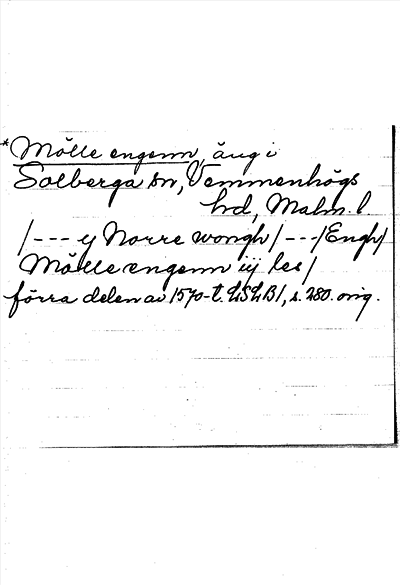 *Mölle engenn, äng i
Solberga sn, Vemmenhögs
hd, Malm. l.
/--- y Norre wongh/---/Engh/
Mölle engenn iij les/
förra delen av 1570-t. LSLB1, s. 280. orig.